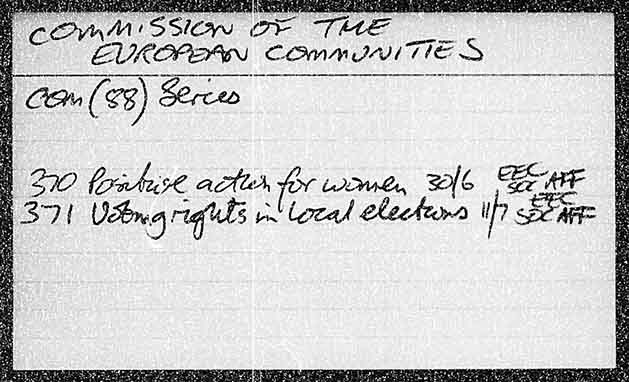 COMMISSION OF THE
EUROPEAN COMMUNITIES
COM (88) Series
370 Positive action for women 30/6 EEC SOC AFF
371 Voting rights in local elections 11/7 EEC SOC AFF